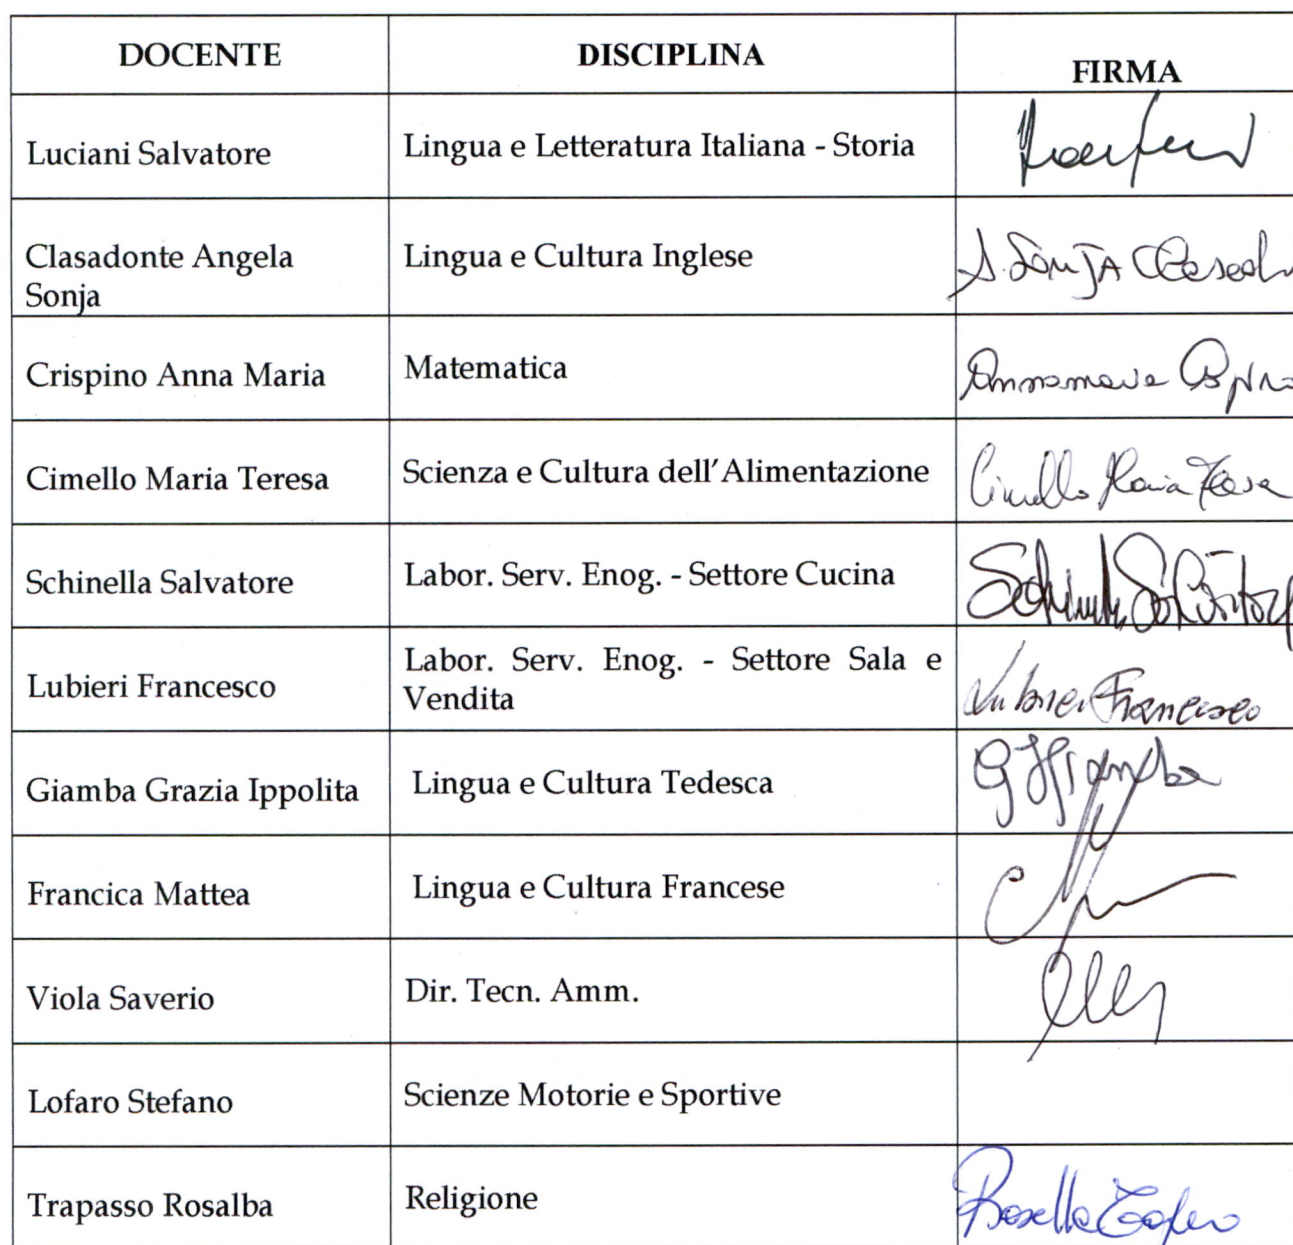 DOCENTE DISCIPLINA FIRMA
Luciani Salvatore Lingua e Letteratura Italiana - Storia
Clasadonte Angela Lingua e Cultura Inglese
Sonja
Crispino Anna Maria Matematica
Cimello Maria Teresa Scienza e Cultura dell'Alimentazione Cimello Maria Teresa
Schinella Salvatore Labor. Serv. Enog. - Settore Cucina Schinella Salvatore
Lubieri Francesco Labor. Serv. Enog. - Settore Sala e Lubieri Francesco
Vendita
Giamba Grazia Ippolita Lingua e Cultura Tedesca
Francica Mattea Lingua e Cultura Francese
Viola Saverio Dir. Tecn. Amm.
Lofaro Stefano Scienze Motorie e Sportive
Trapasso Rosalba Religione